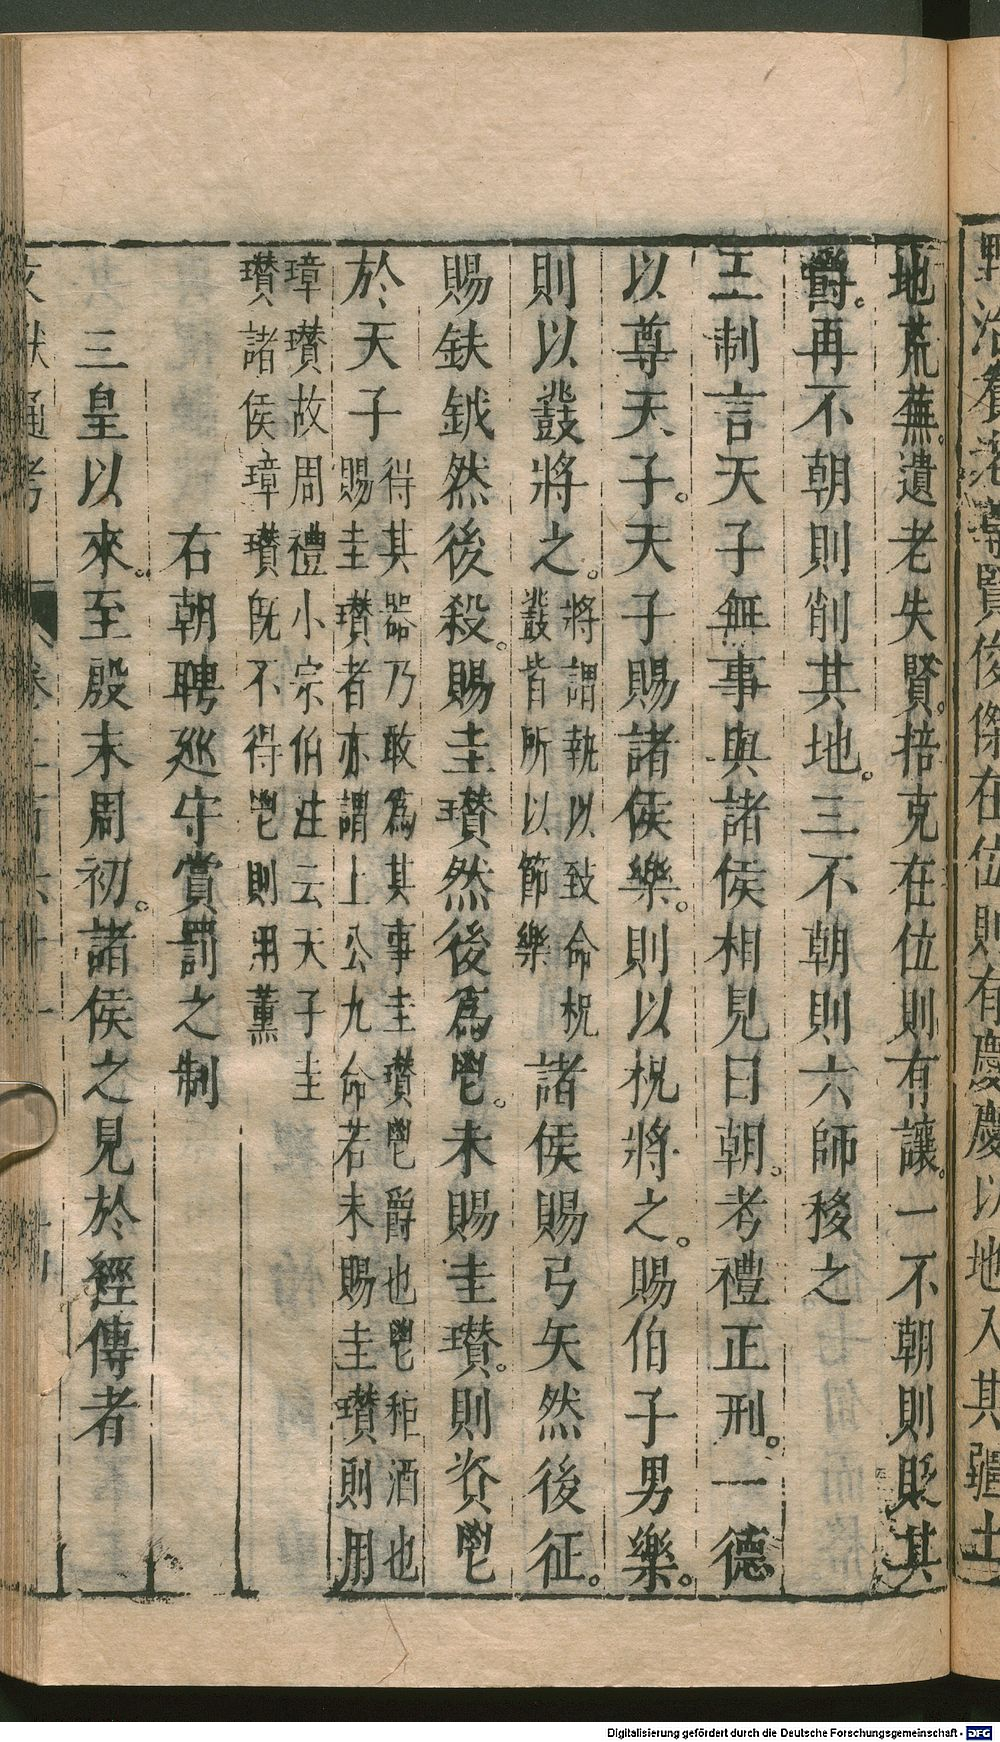 賢俊傑在位則有慶慶以地入其疆土
地荒蕪。遺老失賢。掊克在位則有讓。一不朝則貶其
爵。再不朝則削其地。三不朝則六師移之
王制言天子無事與諸侯相見曰朝。考禮正刑。一德
以尊天子。天子賜諸侯樂。則以柷將之。賜伯子男樂。
則以鼗將之。將謂執以致命柷
鼗皆所以節樂
諸侯賜弓矢然後征。
賜鈇鉞然後殺。賜圭瓚然後為鬯。未賜圭瓚。則資鬯
於天子
得其器乃敢為其事圭瓚鬯爵也鬯秬酒也
賜圭瓚者亦謂上公九命若未賜圭瓚則用
璋瓚故周禮小宗伯注云天子圭
瓚諸侯璋瓚既不得鬯則用薰
右朝聘巡守賞罰之制
三皇以來。至殷末周初。諸侯之見於經傳者
通考
Digitalisierung gefördert durch die Deutsche Forschungsgemeinschaft - DFG